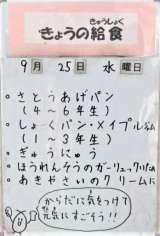 きゅうしょく
きょうの給食
9月 25日 水曜日
・さとうあげパン
(4-6年生)
・しょくパン・メイプルジャム
(1-3年生)
・ぎゅうにゅう
・ほうれんそうのガーリックソテー
・あきやさいのクリームに
からだに気をつけて
元気にすごそう!!